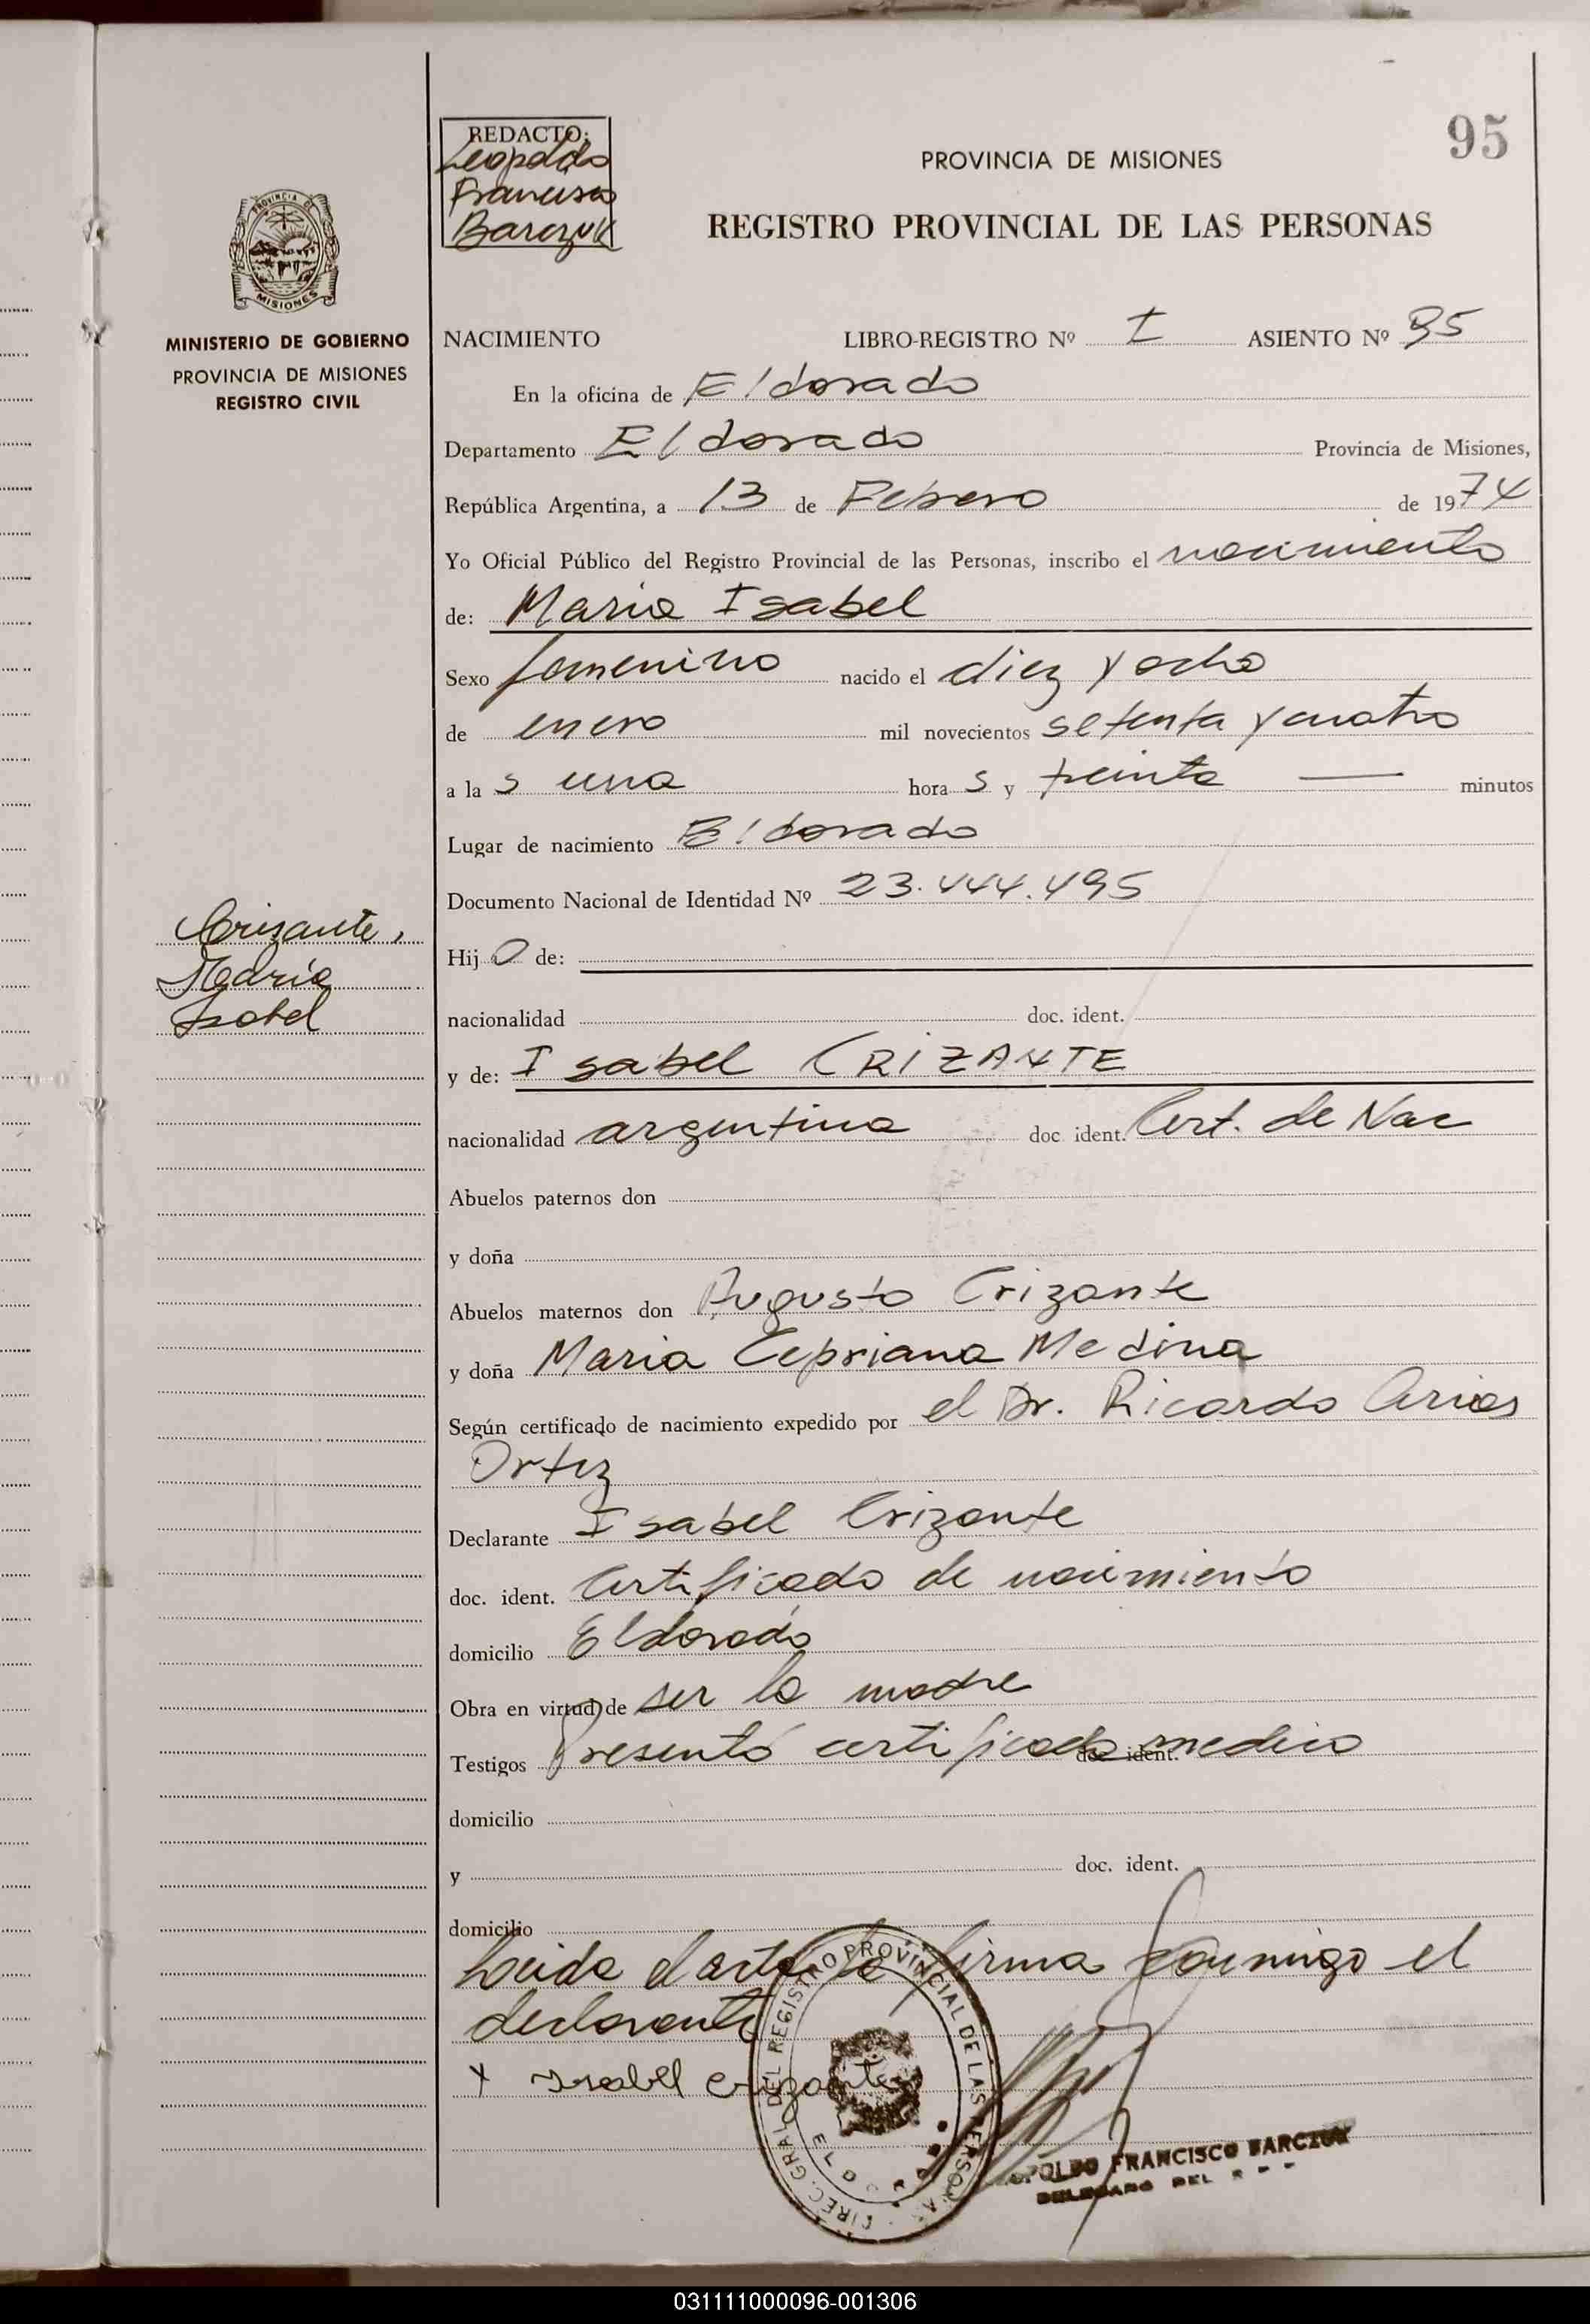 95
REDACTO:
Leopoldo
Francisco
Barczuk
PROVINCIA DE MISIONES
REGISTRO PROVINCIAL DE LAS PERSONAS
PROVINCIA DE
MISIONES
MINISTERIO DE GOBIERNO
PROVINCIA DE MISIONES
REGISTRO CIVIL
NACIMIENTO LIBRO-REGISTRO Nº I ASIENTO Nº 95
En la oficina de Eldorado
Departamento Eldorado Provincia de Misiones,
República Argentina, a 13 de Febrero de 1974
Yo Oficial Público del Registro Provincial de las Personas, inscribo el nacimiento
de: Maria Isabel
Sexo femenino nacido el diez y ocho
de enero mil novecientos setenta y cuatro
a la s una hora s y treinta — minutos
Lugar de nacimiento Eldorado
Documento Nacional de Identidad Nº 23.444.495
Crizante,
María
Isabel
Hij a de:
nacionalidad doc. ident.
y de: Isabel CRIZANTE
nacionalidad argentina doc ident. Cert. de Nac
Abuelos paternos don
y doña
Abuelos maternos don Augusto Crizante
y doña Maria Cepriana Medina
Según certificado de nacimiento expedido por el Dr. Ricardo Arias
Ortiz
Declarante Isabel Crizante
doc. ident. Certificado de nacimiento
domicilio Eldorado
Obra en virtud de ser la madre
Testigos Presentó certificado medico doc ident.
domicilio
y doc. ident.
domicilio
Leida el acta la firma conmigo el
declarante
x Isabel crizante
DIREC. GRAL DEL REGISTRO PROVINCIAL DE LAS PERSONAS
LEOPOLDO FRANCISCO BARCZUK
DELEGADO DEL R
031111000096-001306